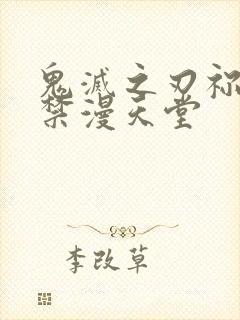 鬼滅之刃祢
禁漫天堂
李改草